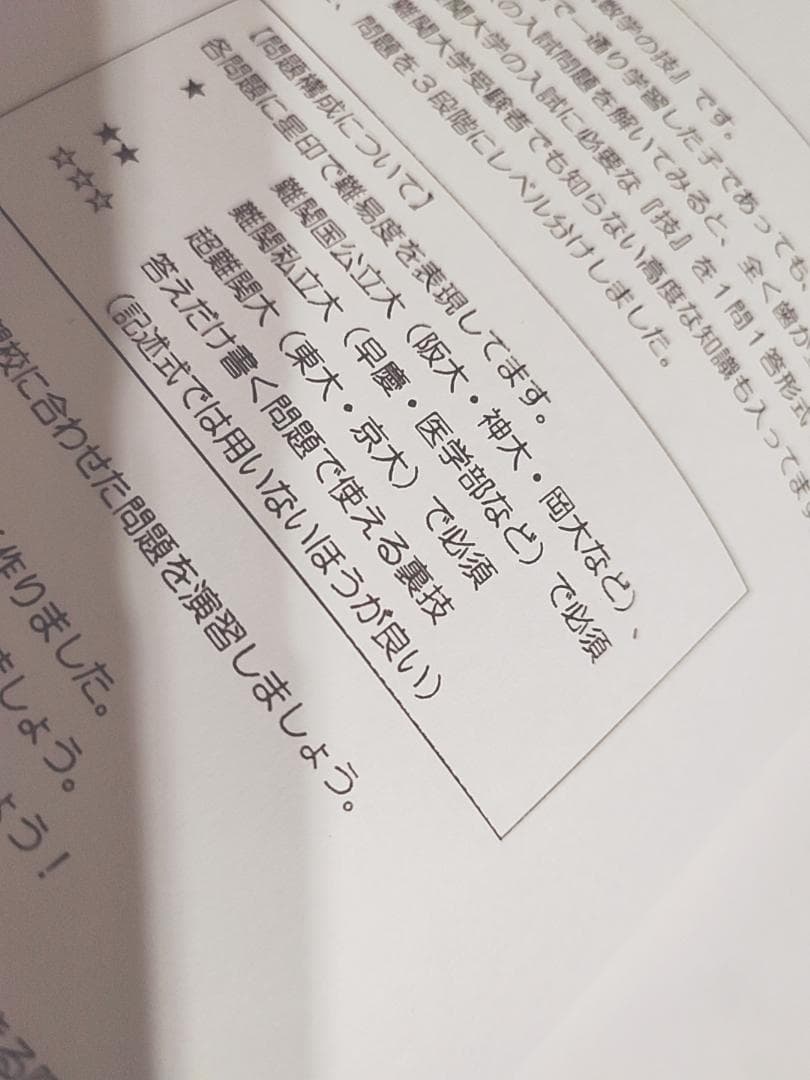 数学の技』です。
で一通り学習した子であっても、
の入試問題を解いてみると、全く歯が
関大学の入試に必要な『技』を1問1答形式
難関大学受験者でも知らない高度な知識も入ってます
、問題を3段階にレベル分けしました。
【問題構成について】
各問題に星印で難易度を表現してます。
★ 難関国公立大（阪大・神大・岡大など）、
難関私立大（早慶・医学部など）で必須
★★ 超難関大（東大・京大）で必須
☆☆☆ 答えだけ書く問題で使える裏技
（記述式では用いないほうが良い）
校に合わせた問題を演習しましょう。
作りました。
ましょう。
ょう！